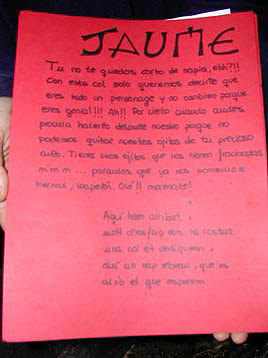 JAUME
Tu no te quedas corto de napia, ehh?!!
Con esta col solo queremos decirte que
eres todo un personage y no cambies porque
eres genial!!! Ah!! Por cierto cuando andes
procura hacerlo delante nuestro porque no
podemos quitar nuestros ojitos de tu precioso
culito. Tienes unos ojitos que nos tienen fascinadas
mmm... paramos que ya nos ponemos
tiernas, wapetón. Olé!!
Aquí hem arribat i
molt d'esforç ens ha costat
una col et dediquem i
així un nap rebem, que és
això el que esperem